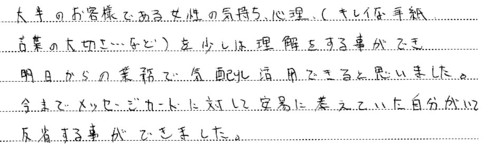 大半のお客様である女性の気持ち、心理、(キレイな手紙
言葉の大切さ…など)を少しは理解をする事ができ
明日からの業務で気配りし活用できると思いました。
今までメッセージカードに対して安易に考えていた自分がいて
反省する事ができました。